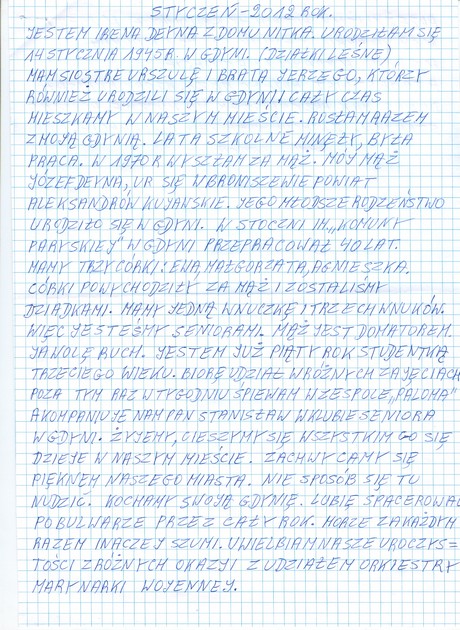 STYCZEŃ - 2012 ROK.
JESTEM IRENA DEYNA Z DOMU NITKA. URODZIŁAM SIĘ
14 STYCZNIA 1945R. W GDYNI. (DZIAŁKI LEŚNE)
MAM SIOSTRE URSZULĘ I BRATA JERZEGO, KTÓRZY
RÓWNIEŻ URODZILI SIĘ W GDYNI I CAŁY CZAS
MIESZKAMY W NASZYM MIEŚCIE. ROSŁAM RAZEM
Z MOJĄ GDYNIĄ. LATA SZKOLNE MINĘŁY, BYŁA
PRACA. W 1970R WYSZŁAM ZA MĄŻ. MÓJ MĄŻ
JÓZEF DEYNA, UR SIĘ W BRONISZEWIE POWIAT
ALEKSANDRÓW KUJAWSKIE. JEGO MŁODSZE RODZEŃSTWO
URODZIŁO SIĘ W GDYNI. W STOCZNI IM. „KOMUNY
PARYSKIEJ" W GDYNI PRZEPRACOWAŁ 40 LAT.
MAMY TRZY CÓRKI: EWA, MAŁGORZATA, AGNIESZKA.
CÓRKI POWYCHODZIŁY ZA MĄŻ I ZOSTALIŚMY
DZIADKAMI. MAMY JEDNĄ WNUCZKĘ I TRZECH WNUKÓW.
WIĘC JESTEŚMY SENIORAMI. MĄŻ JEST DOMATOREM.
JA WOLĘ RUCH. JESTEM JUŻ PIĄTY ROK STUDENTKĄ
TRZECIEGO WIEKU. BIORĘ UDZIAŁ W RÓŻNYCH ZAJĘCIACH
POZA TYM RAZ W TYGODNIU ŚPIEWAM W ZESPOLE „PALOMA"
AKOMPANIUJE NAM PAN STANISŁAW W KLUBIE SENIORA
W GDYNI. ŻYJEMY, CIESZYMY SIĘ WSZYSTKIM CO SIĘ
DZIEJE W NASZYM MIEŚCIE. ZACHWYCAMY SIĘ
PIĘKNEM NASZEGO MIASTA. NIE SPOSÓB SIĘ TU
NUDZIĆ. KOCHAMY SWOJĄ GDYNIĘ. LUBIĘ SPACEROWAĆ
PO BULWARZE PRZEZ CAŁY ROK. MORZE ZA KAŻDYM
RAZEM INACZEJ SZUMI. UWIELBIAM NASZE UROCZYS=
TOŚCI Z RÓŻNYCH OKAZYI Z UDZIAŁEM ORKIESTRY
MARYNARKI WOJENNEJ.